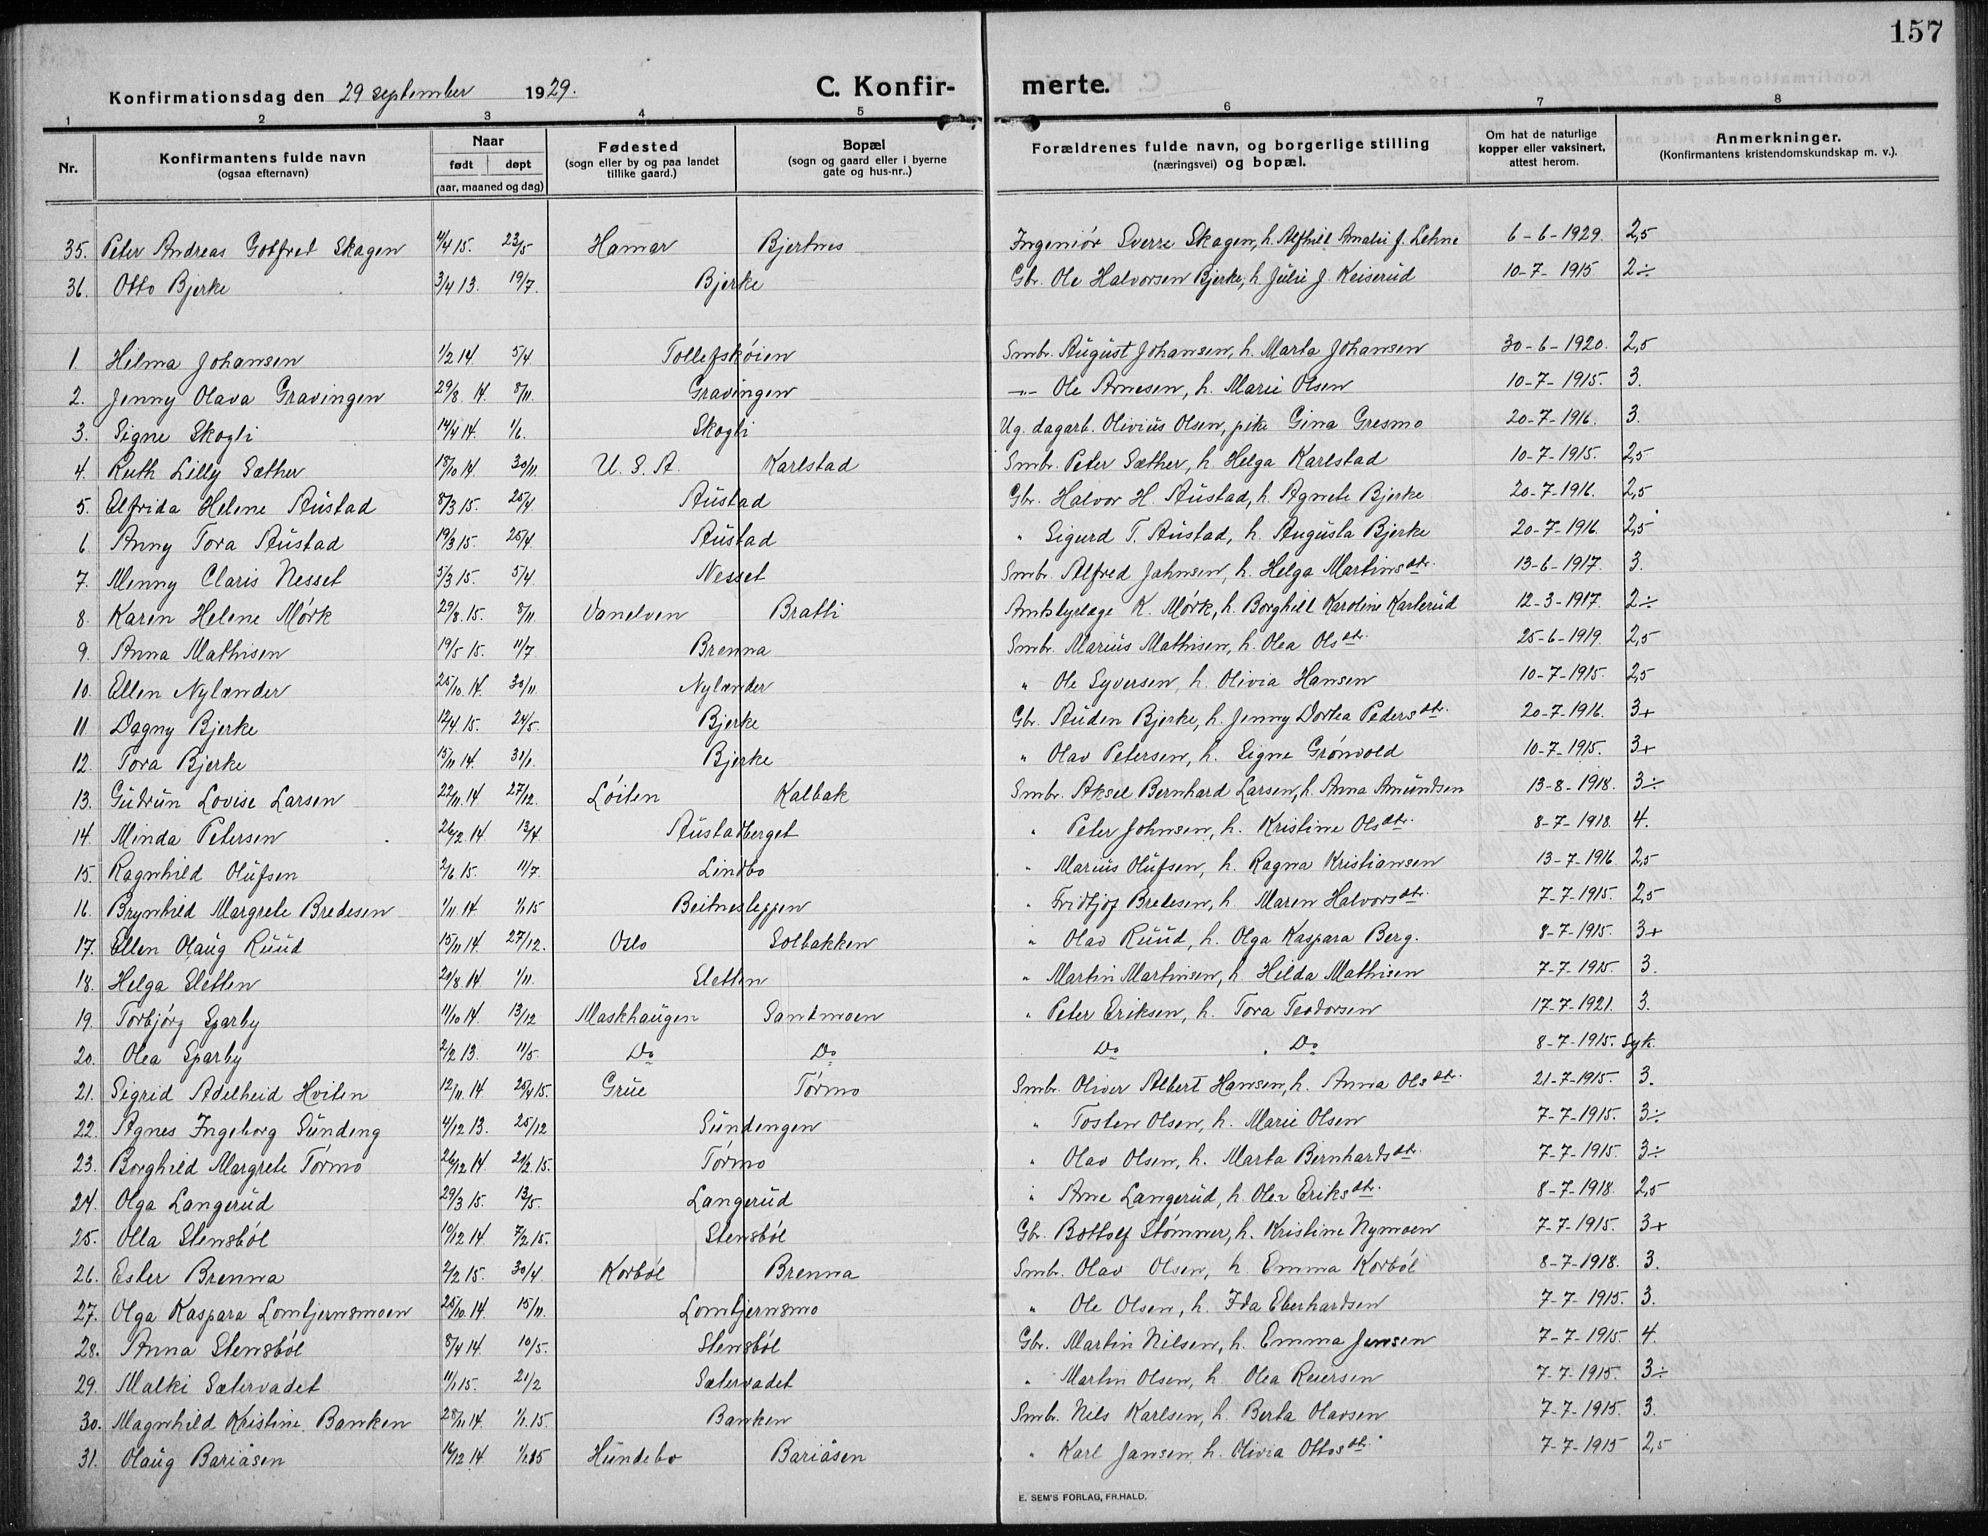 157
Konfirmationsdag den 29 september 1929. C. Konfir- merte.
1 2 3 4 5 6 7 8
Nr. Konfirmantens fulde navn (ogsaa efternavn) Naar født døpt (aar, maaned og dag) Fødested (sogn eller by og paa landet tillike gaard.) Bopæl (sogn og gaard eller i byerne gate og hus-nr..) Forældrenes fulde navn, og borgerlige stilling (næringsvei) og bopæl. Om hat de naturlige kopper eller vaksinert, attest herom. Anmerkninger. (Konfirmantens kristendomskundskap m. v.).
35. Peter Andreas Gotfred Skagen 4/4 15. 23/5 Hamar Bjertnes Ingeniör Sverre Skagen, h. Alfhild Amalie J. Lehne 6-6-1929. 2,5
36. Otto Bjerke 3/4 13. 19/7. Bjerke Gbr. Ole Halvorsen Bjerke, h. Julie J. Keiserud 10-7-1915 2÷
1. Hilma Johansen 1/2 14 5/4 Tollefskóien Smbr. August Johansen, h. Marta Johansen 30-6-1920. 2,5
2. Jenny Olava Gravingen 29/8. 14 8/11. Gravingen -"- Ole Arnesen, h. Marie Olsen 10-7-1915. 3.
3. Signe Skogli 14/4 14. 1/6. Skogli Ug. dagarb. Olivius Olsen, pike Gina Gresmo 20-7-1916. 3.
4. Ruth Lilly Sæther 18/10 14 30/11 U. S. A. Karlstad Smbr. Peter Sæther, h. Helga Karlstad 10-7-1915. 2,5
5. Elfrida Helene Austad 8/3 15. 25/4 Austad Gbr. Halvor H. Austad, h. Agnete Bjerke 20-7-1916. 2,5
6 Anny Tora Austad 19/3 15. 25/4 Austad " Sigurd T. Austad, h. Augusta Bjerke 20-7-1916. 2,5
7. Menny Claris Nesset 5/3 15. 5/4 Nesset Smbr. Alfred Jahnsen, h. Helga Martinsdtr. 13-6-1917. 3.
8. Karen Helene Mørk 29/8. 15. 8/11 Vanelven Bratli Amtslyrlæge K. Mørk, h. Borghild Karoline Karterud 12-3-1917. 2÷
9. Anna Mathisen 19/5 15. 11/7 Brenna Smbr. Marius Mathisen, h. Olea Olsdtr. 25-6-1919. 2,5
10. Ellen Nylænder 25/10. 14. 30/11. Nylænder " Ole Syversen, h. Olivia Hansen 10-7-1915. 2,5
11 Dagny Bjerke 12/4 15. 24/5. Bjerke Gbr. Auden Bjerke, h. Jenny Dortea Pedersdtr. 20-7-1916. 3+
12. Tora Bjerke 15/11 14. 31/1. Bjerke " Olav Petersen, h. Signe Grönvold 10-7-1915. 3+
13. Gudrun Lovise Larsen 22/11. 14 27/12. Löiten Kalbak Smbr. Aksel Bernhard Larsen, h. Anna Amundsen 13-8-1918. 3÷
14 Minda Petersen 26/2 14 13/4 Austadberget " Peter Johnsen, h. Kristine Olsdtr. 8-7-1918 4.
15. Ragnhild Olufsen 2/6 15. 11/7. Lindbo " Marius Olufsen, h. Ragna Kristiansen 13-7-1916 2,5
16 Brynhild Margrete Bredesen 1/11 14 1/1 15 Beitnesleggen " Fridtjof Bredesen, h. Maren Halvorsdtr. 7-7-1915. 2,5
17. Ellen Olaug Ruud 15/11 14. 27/12. Oslo Solbakken " Olav Ruud, h. Olga Kaspara Berg. 8-7-1915. 3+
18. Helga Sletten 20/8 14 1/11. Sletten " Martin Martinsen, h. Hilda Mathisen 7-7 1915. 3.
19. Torbjórg Sparby 11/10 14. 13/12 Maskhaugen Sandmoen " Peter Eriksen, h. Tora Teodorsen 17-7-1921. 3.
20. Olea Sparby 2/2 13. 11/5. Do Do Do Do 8-7-1915. Syk.
21. Sigrid Adelheid Hviten 12/11. 14 25/4 15. Grue Törmo Smbr. Oliver Albert Hansen, h. Anna Olsdtr. 21-7-1915. 3.
22. Agnes Ingeborg Sundeng 4/12 13. 25/12 Sundengen " Tosten Olsen, h. Marie Olsen 7-7-1915. 3÷
23. Borghild Margrete Törmo 26/12 14 21/2 15. Törmo " Olav Olsen, h. Marta Bernhardsdtr. 7-7-1915 3÷
24. Olga Langerud 29/3 15. 13/5. Langerud " Arne Langerud, h. Olea Eriksdtr. 8-7-1918. 2,5
25. Olla Stensból 19/12 14 7/2 15. Stensból Gbr. Bottolf Stömner, h. Kristine Nymoen 7-7 1915. 3+
26. Ester Brenna 2/2 15. 30/4 Korból Brenna Smbr. Olav Olsen, h. Emma Korból 8-7-1918. 3.
27. Olga Kaspara Lomtjernsmoen 25/10. 14 15/11. Lomtjernsmo " Ole Olsen, h. Ida Eberhardsen 7-7-1915. 3.
28. Anna Stensból 8/4 14 10/5. Stensból Gbr. Martin Nilsen, h. Emma Jensen 7-7-1915 4.
29. Malki Sætervadet 11/1 15. 21/2 Sætervadet " Martin Olsen, h. Olea Reiersen 7-7-1915. 3÷
30. Magnhild Kristine Banken 28/11 14. 1/1. 15. Banken Smbr. Nils Karlsen, h. Berta Olavsen 7-7-1915. 3.
31. Olaug Bariåsen 14/12 14 1/1 15 Hundebo Bariåsen " Karl Jansen, h. Olivia Ottosdtr. 7-7-1915 2,5
E. SEM'S FORLAG, FR.HALD.